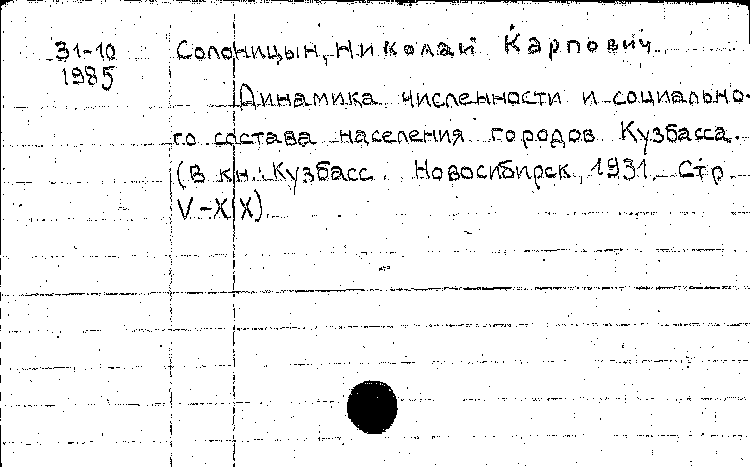 31-10 Солоницын, Николай Карпович.
1985
Динамика численности и социально-
го состава населения городов Кузбасса.
(В кн.: Кузбасс. Новосибирск, 1931. Стр.
V-XIX).